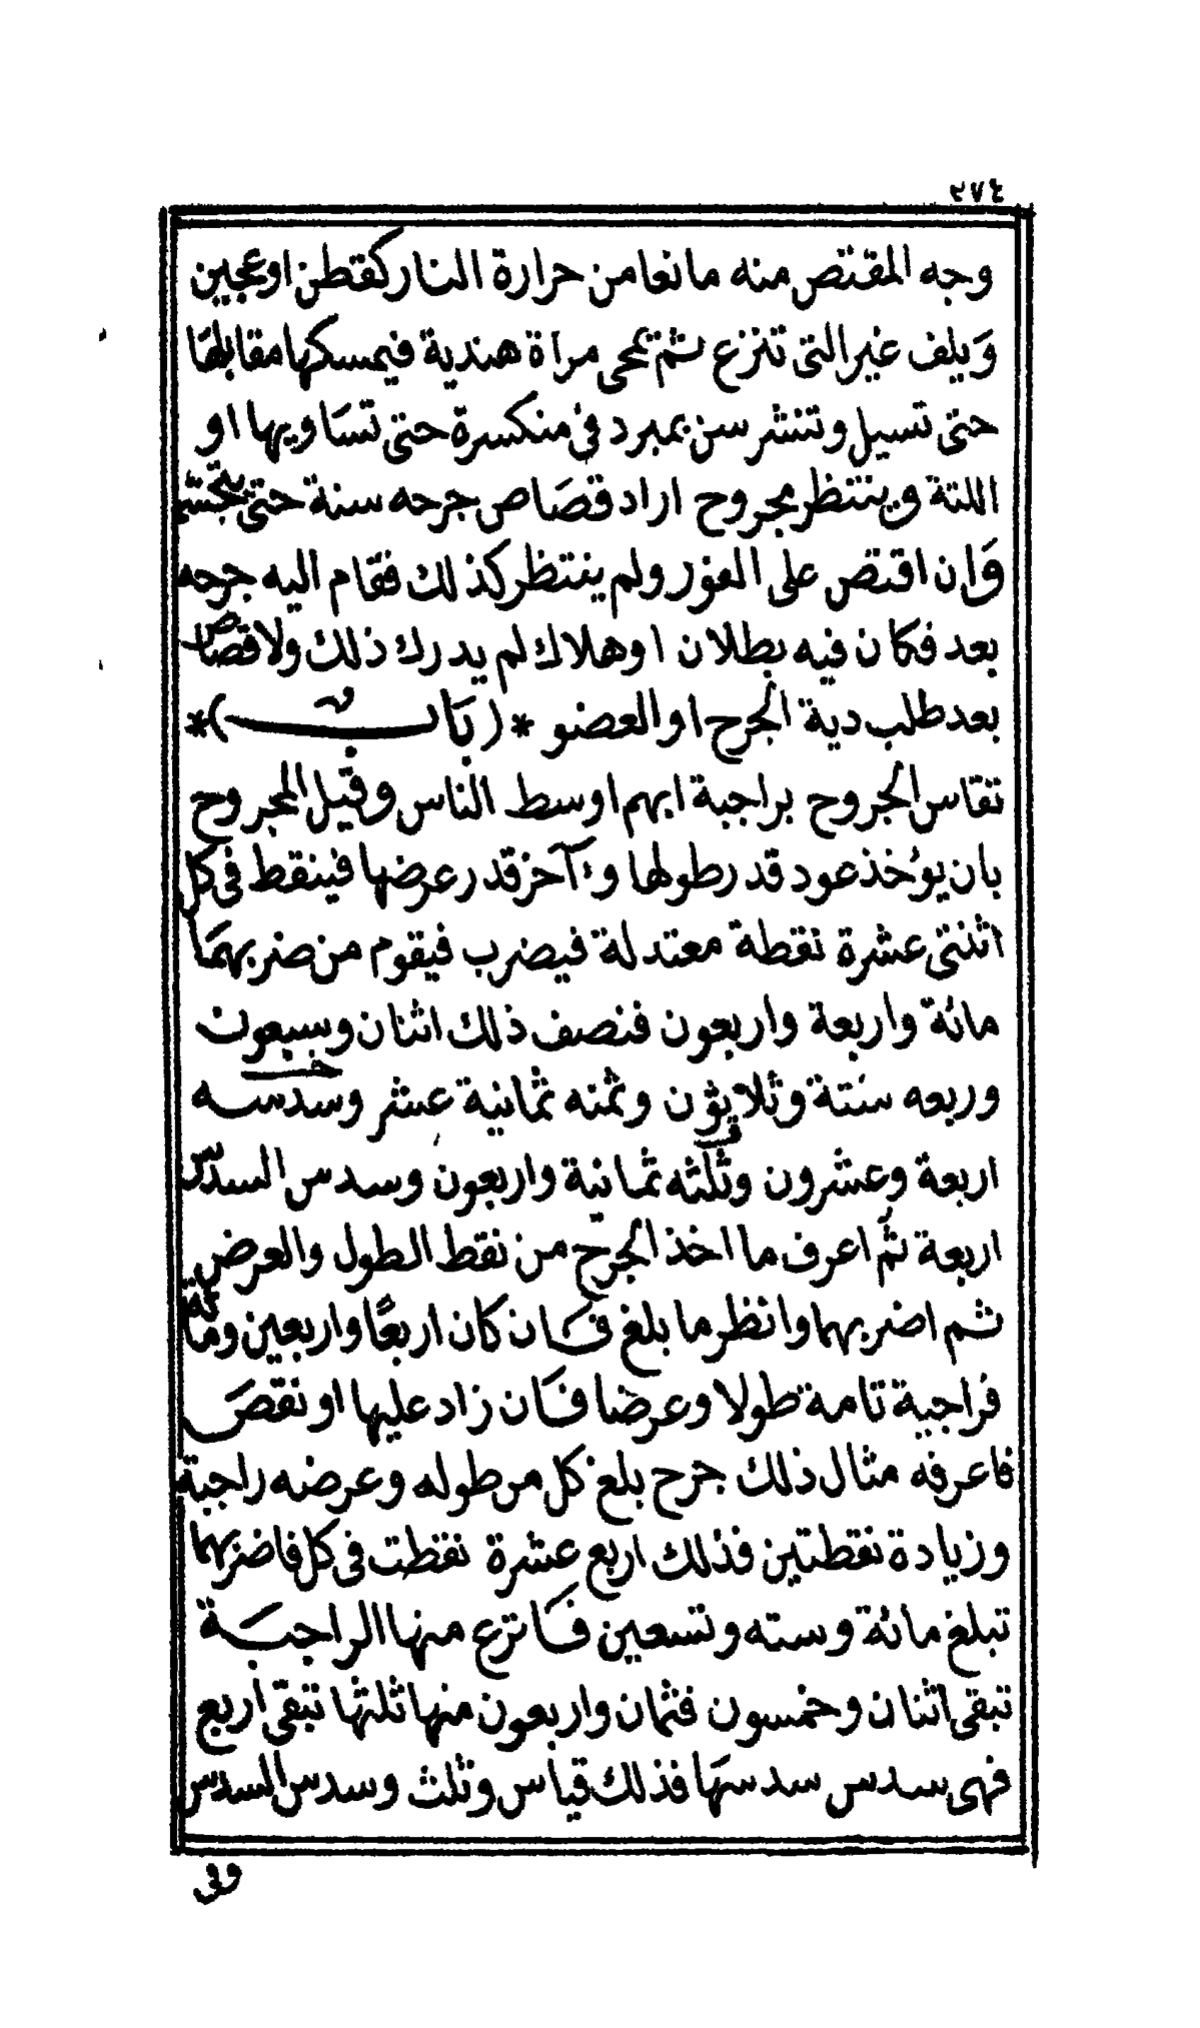 ٢٧٤
وجه المقتص منه مانعا من حرارة النار كقطن او عجين
ويلف غير التى تنزع ثم تحمى مرآة هندية فيمسكها مقابلها
حتى تسيل وتنشر سن بمبرد فى منكسرة حتى تساويها او
اللتة وينتظر مجروح اراد قصاص جرحه سنة حتى يتجشم
وان اقتص على الفور ولم ينتظر كذلك فقام اليه جرحه
بعد فكان فيه بطلان او هلاك لم يدرك ذلك ولا قصاص
بعد طلب دية الجرح او العضو * (باب) *
تقاس الجروح براجبة ابهم اوسط الناس وقيل المجروح
بان يؤخذ عود قدر طولها وءآخر قدر عرضها فينقط فى كل
اثنتى عشرة نقطة معتدلة فيضرب فيقوم من ضربهما
مائة واربعة واربعون فنصف ذلك اثنان وسبعون
وربعه ستة وثلاثون وثمنه ثمانية عشر وسدسه
اربعة وعشرون وثلثه ثمانية واربعون وسدس السدس
اربعة ثم اعرف ما اخذ الجرح من نقط الطول والعرض
ثم اضربهما وانظر ما بلغ فان كان اربعًا واربعين ومائة
فراجبة تامة طولا وعرضا فان زاد عليها او نقص
فاعرفه مثال ذلك جرح بلغ كل من طوله وعرضه راجبة
وزيادة نقطتين فذلك اربع عشرة نقطت فى كل فاضربهما
تبلغ مائة وسته وتسعين فانزع منها الراجبة
تبقى اثنان وخمسون فثمان واربعون منها ثلثها تبقى اربع
فهى سدس سدسها فذلك قياس وثلث وسدس السدس
وفى